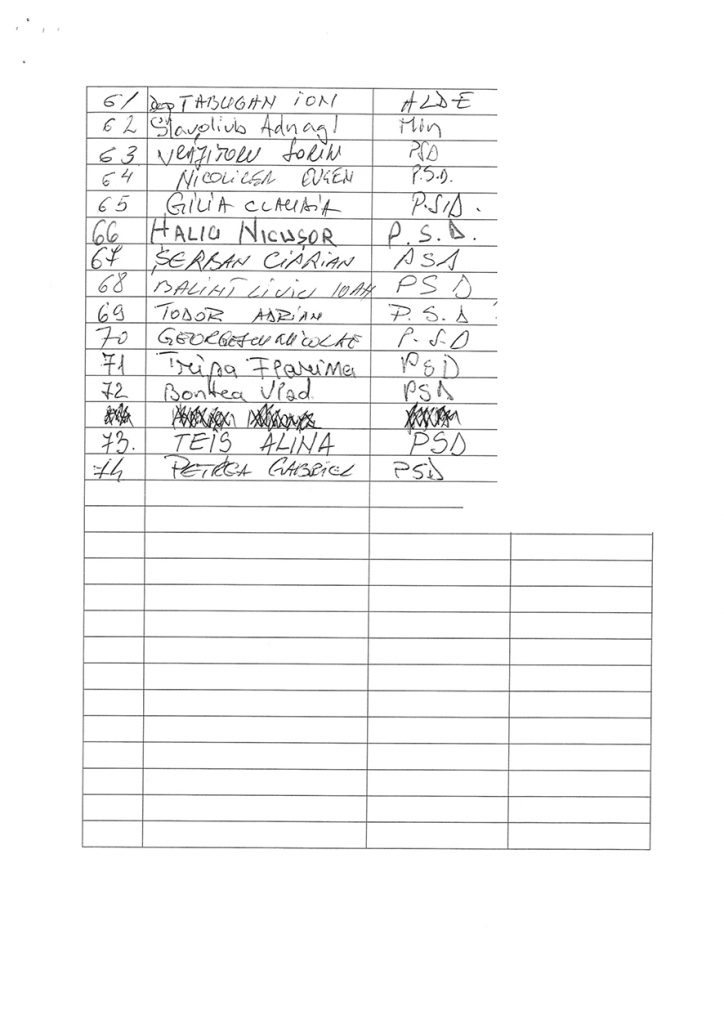 61 Dep TABUGAN ION ALDE
62 Slavoliub Adnagi Min
63 VRAJITORU SORIN PSD
64 NICOLICEA EUGEN P.S.D.
65 GILIA CLAUDIA P.S.D.
66 HALICI NICUSOR P.S.D.
67 ŞERBAN CIPRIAN PSD
68 BALINT LIVIU IOAN PSD
69 TODOR ADRIAN P.S.D
70 GEORGESCU NICOLAE P.S.D
71 Trupa Florina PSD
72 Bontea Vlad PSD
73. TEIS ALINA PSD
74 PETREA GABRIEL PSD